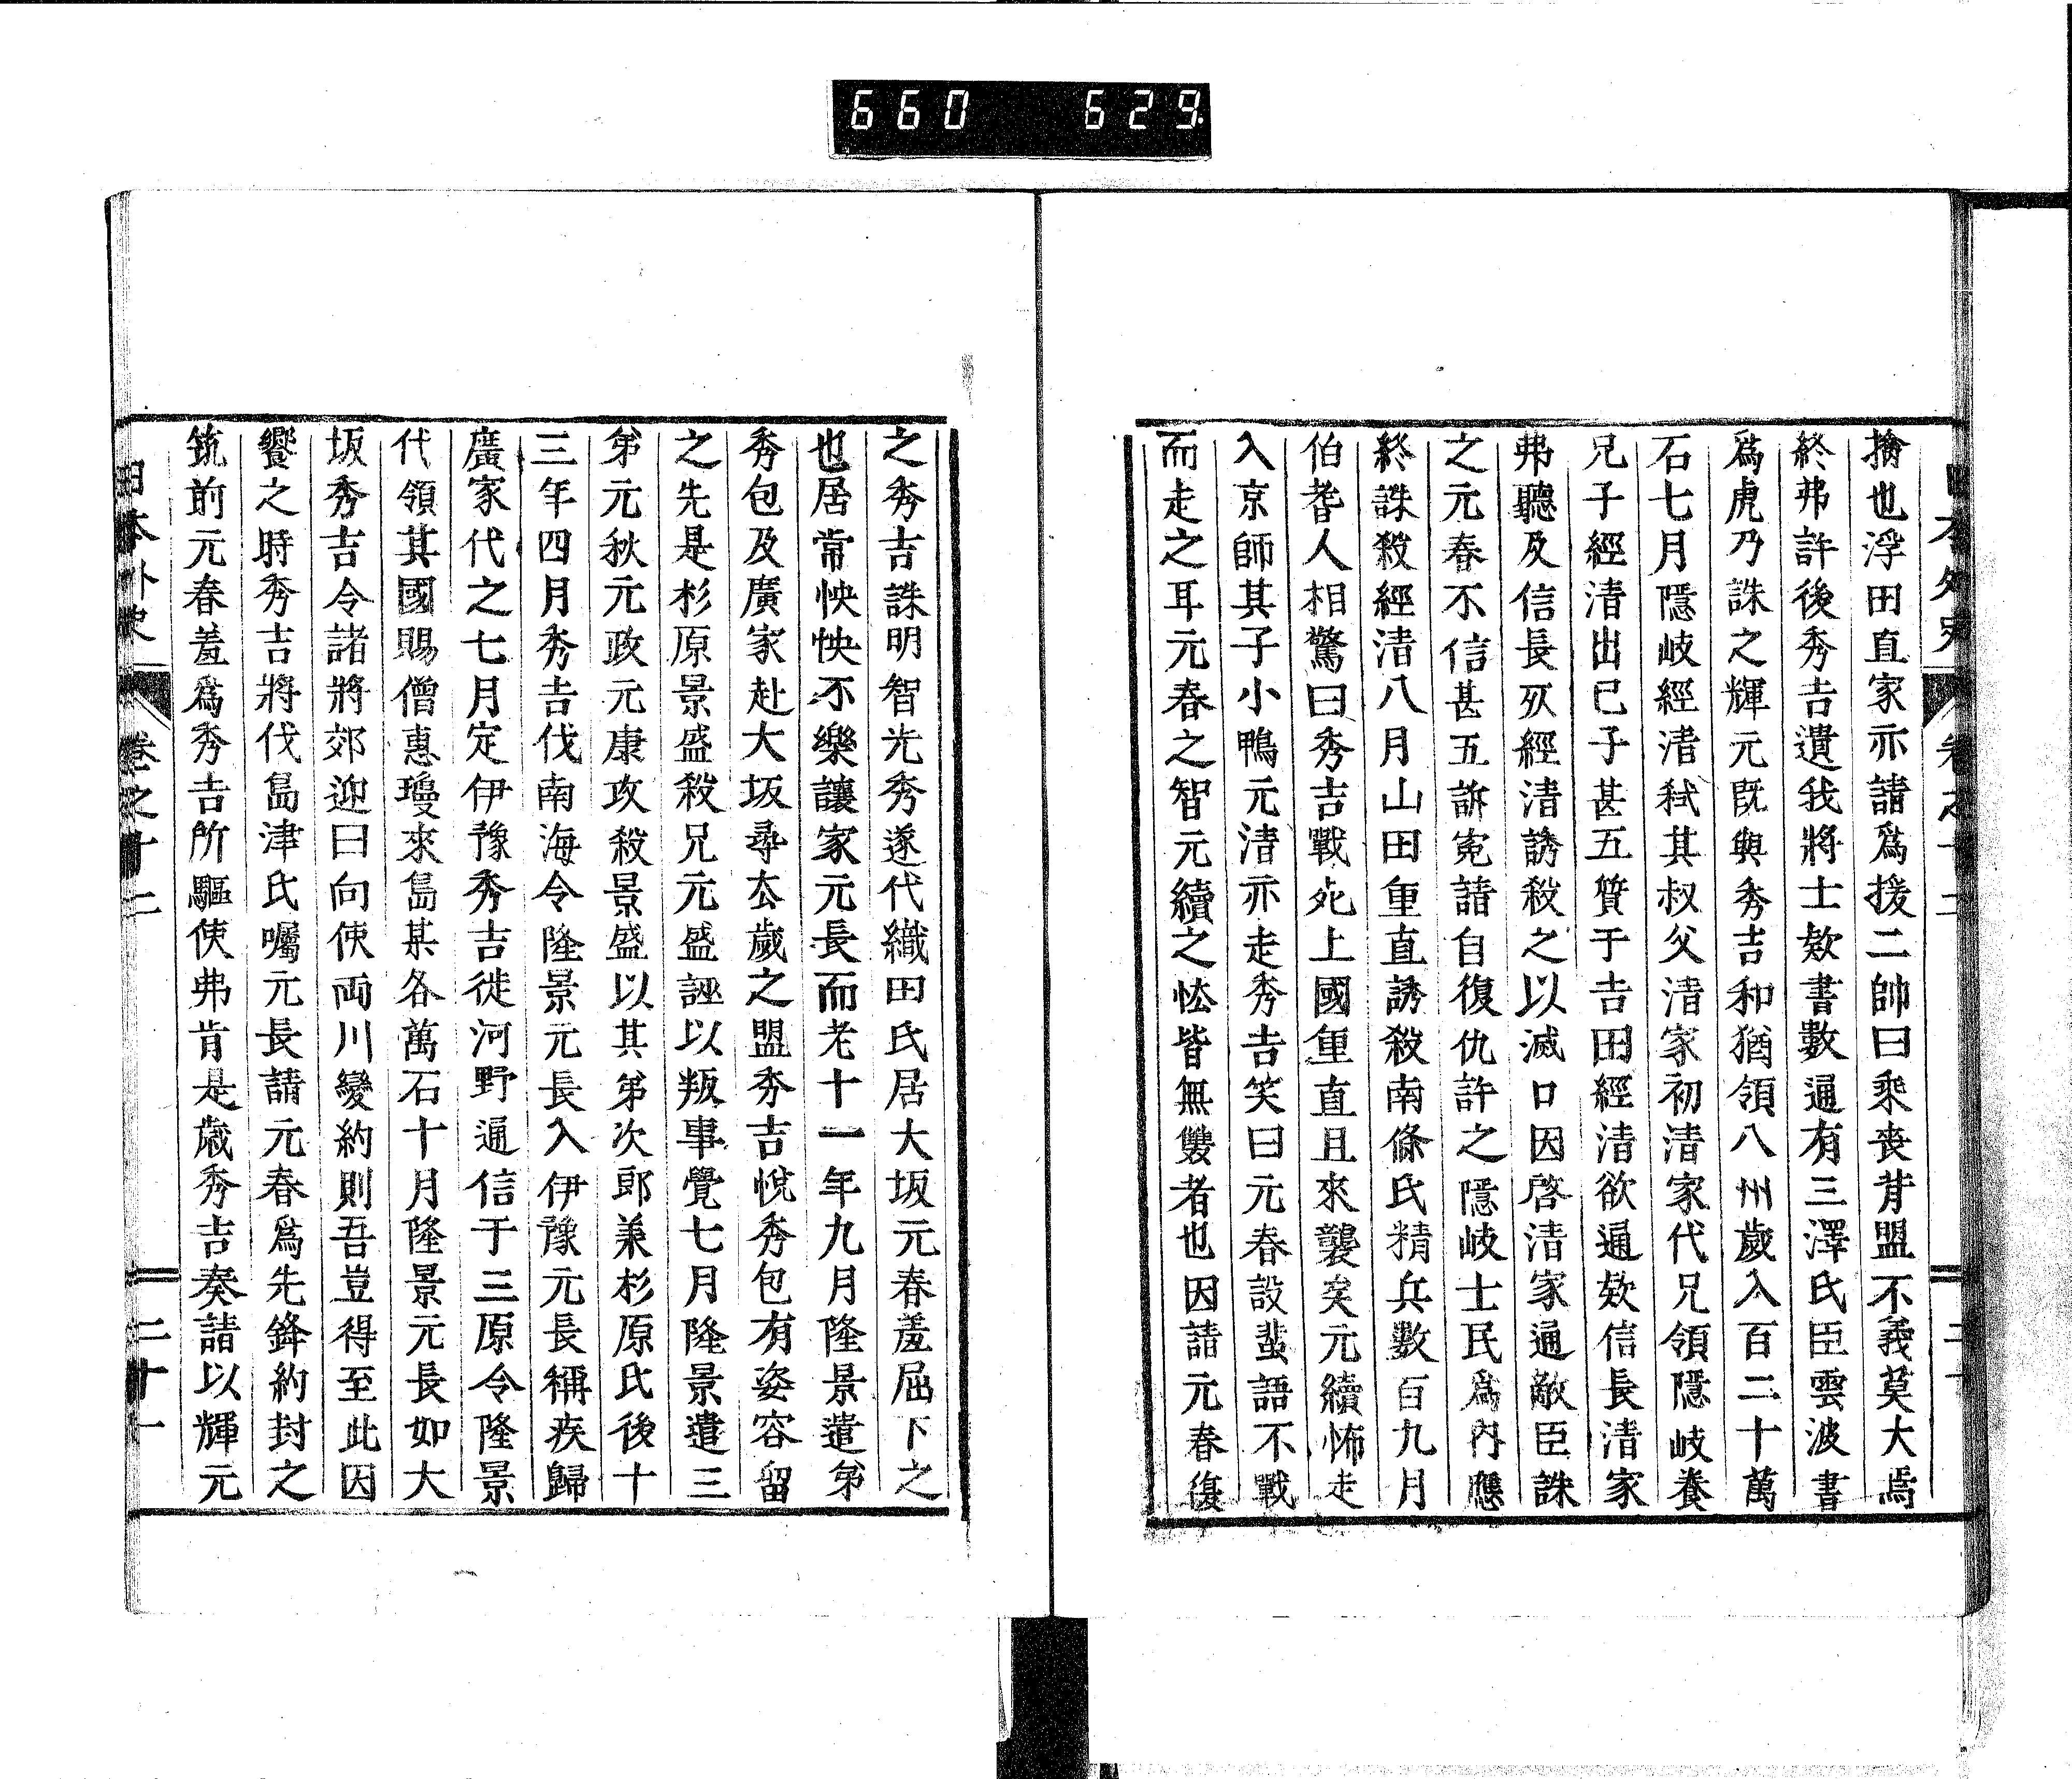 660 629
擒也浮田直家亦請爲援二帥曰乘喪背盟不義莫大焉
終弗許後秀吉遺我將士欵書數通有三澤氏臣雲波書
爲虎乃誅之輝元既與秀吉和猶領八州歲入百二十萬
石七月隱岐經清弑其叔父清家初清家代兄領隱岐養
兄子經清出己子甚五質于吉田經清欲通欵信長清家
弗聽及信長死經清誘殺之以滅口因啓清家通敵臣誅
之元春不信甚五訴寃請自復仇許之隱岐士民爲內應
終誅殺經清八月山田重直誘殺南條氏精兵數百九月
伯耆人相驚曰秀吉戰死上國重直且來襲矣元續怖走
入京師其子小鴨元清亦走秀吉笑曰元春設蜚語不戰
而走之耳元春之智元續之怯皆無雙者也因請元春復
之秀吉誅明智光秀遂代織田氏居大坂元春羞屈下之
也居常怏怏不樂讓家元長而老十一年九月隆景遣弟
秀包及廣家赴大坂尋去歲之盟秀吉悅秀包有姿容留
之先是杉原景盛殺兄元盛誣以叛事覺七月隆景遣三
弟元秋元政元康攻殺景盛以其弟次郎兼杉原氏後十
三年四月秀吉伐南海令隆景元長入伊豫元長稱疾歸
廣家代之七月定伊豫秀吉徙河野通信于三原令隆景
代領其國賜僧惠瓊來島某各萬石十月隆景元長如大
坂秀吉令諸將郊迎曰向使兩川變約則吾豈得至此因
饗之時秀吉將伐島津氏囑元長請元春爲先鋒約封之
筑前元春羞爲秀吉所驅使弗肯是歲秀吉奏請以輝元
日本外史 卷之十二 二十一